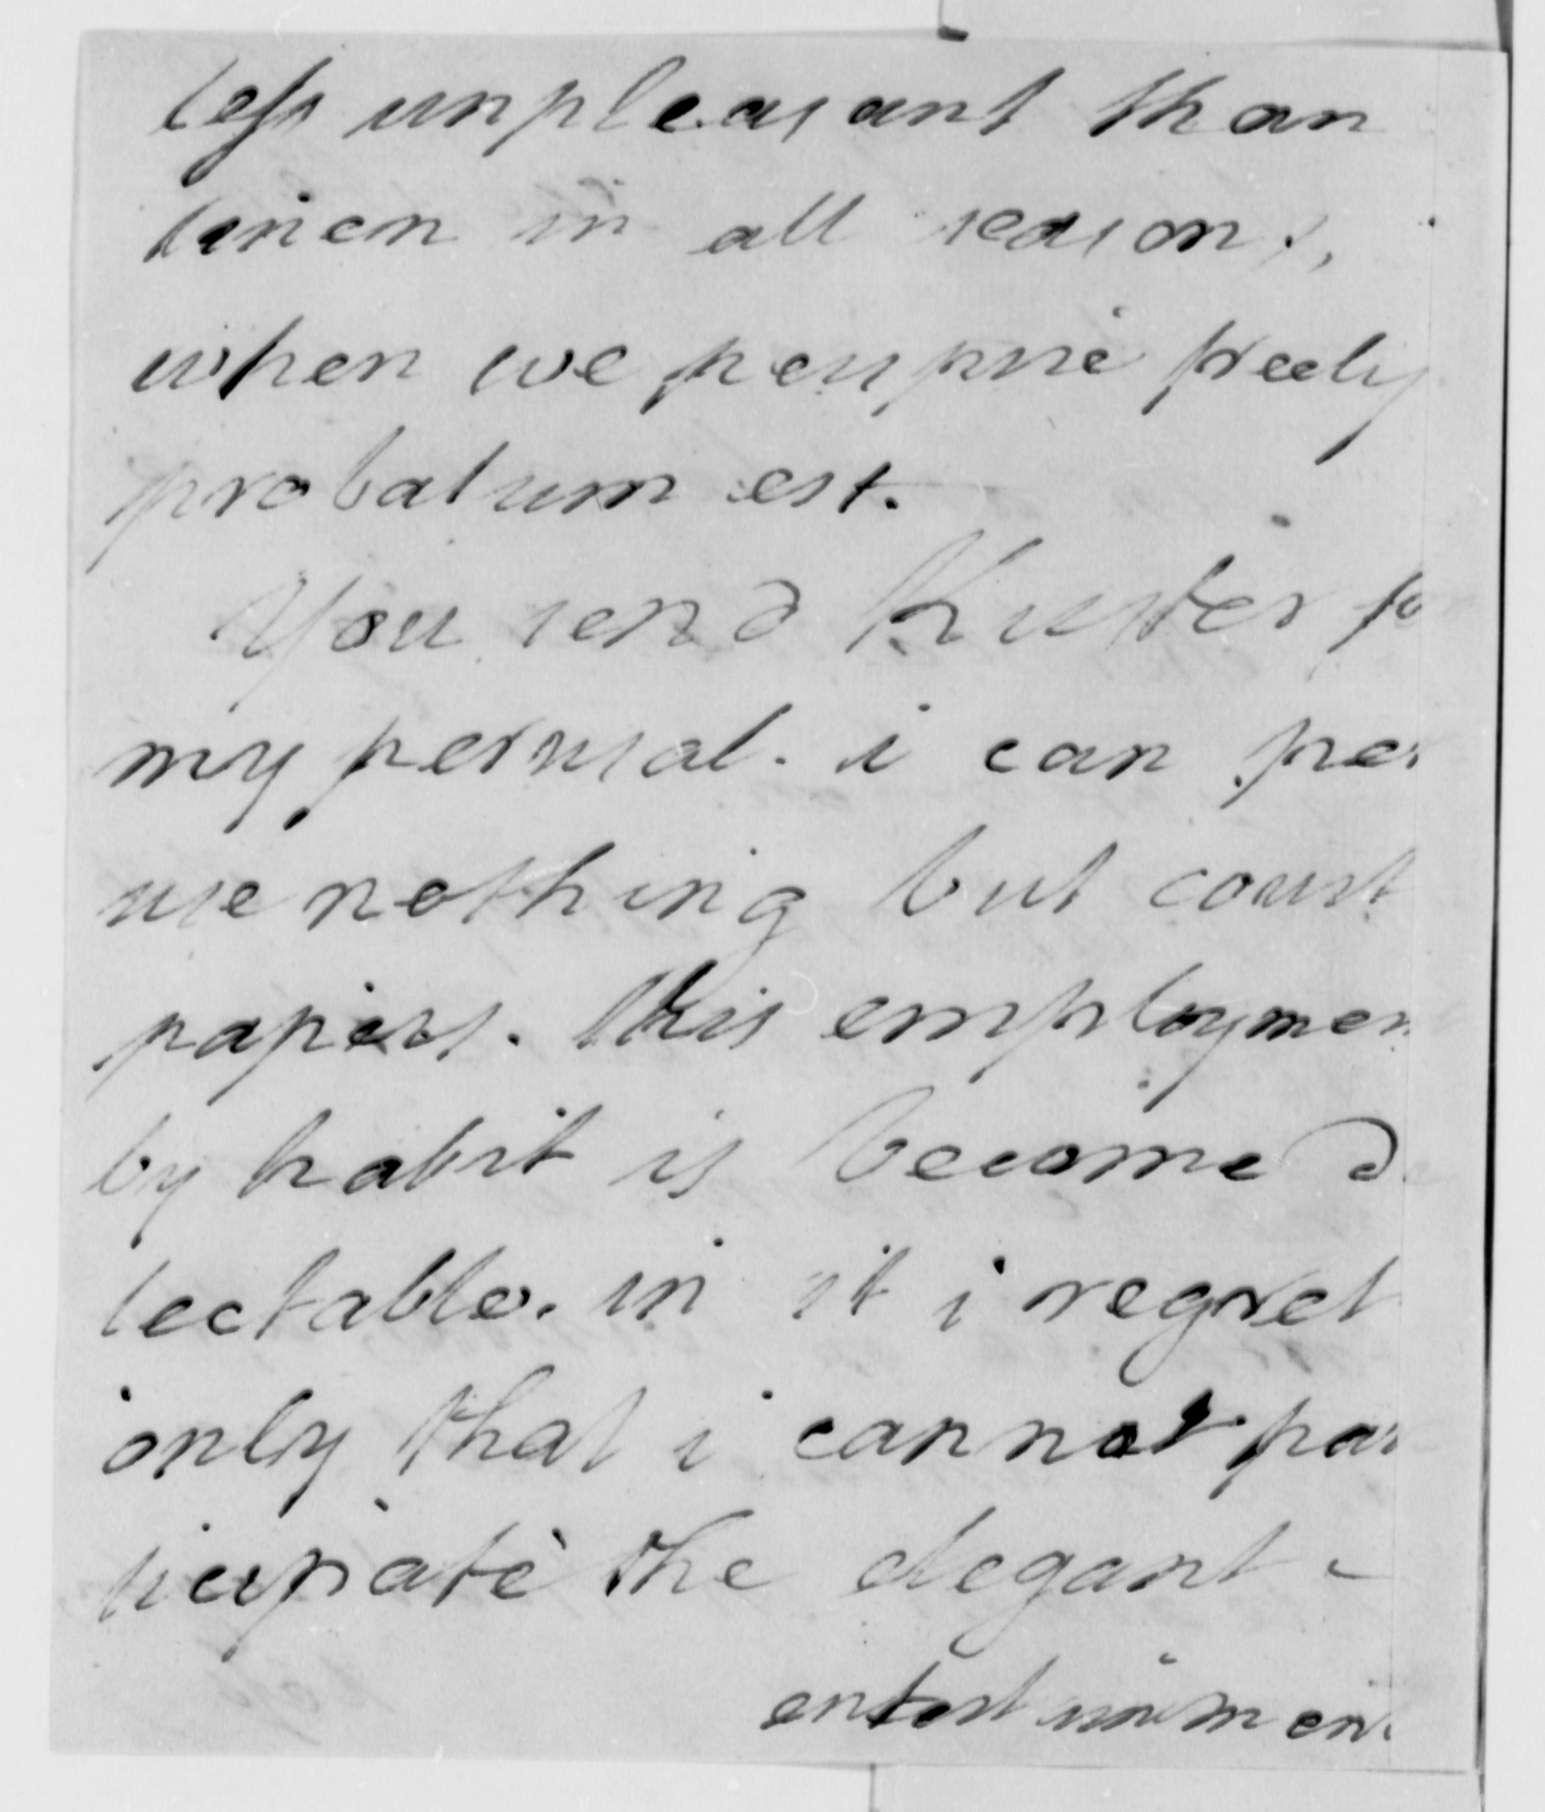 less unpleasant than
linen in all seasons,
when we perspire freely
probatum est.
You send Kuster fo
my perusal. i can per
use nothing but court
papers. this employmen
by habit is become de
lectable. in it i regret
only that i cannot par
ticipate the elegant
entertainment